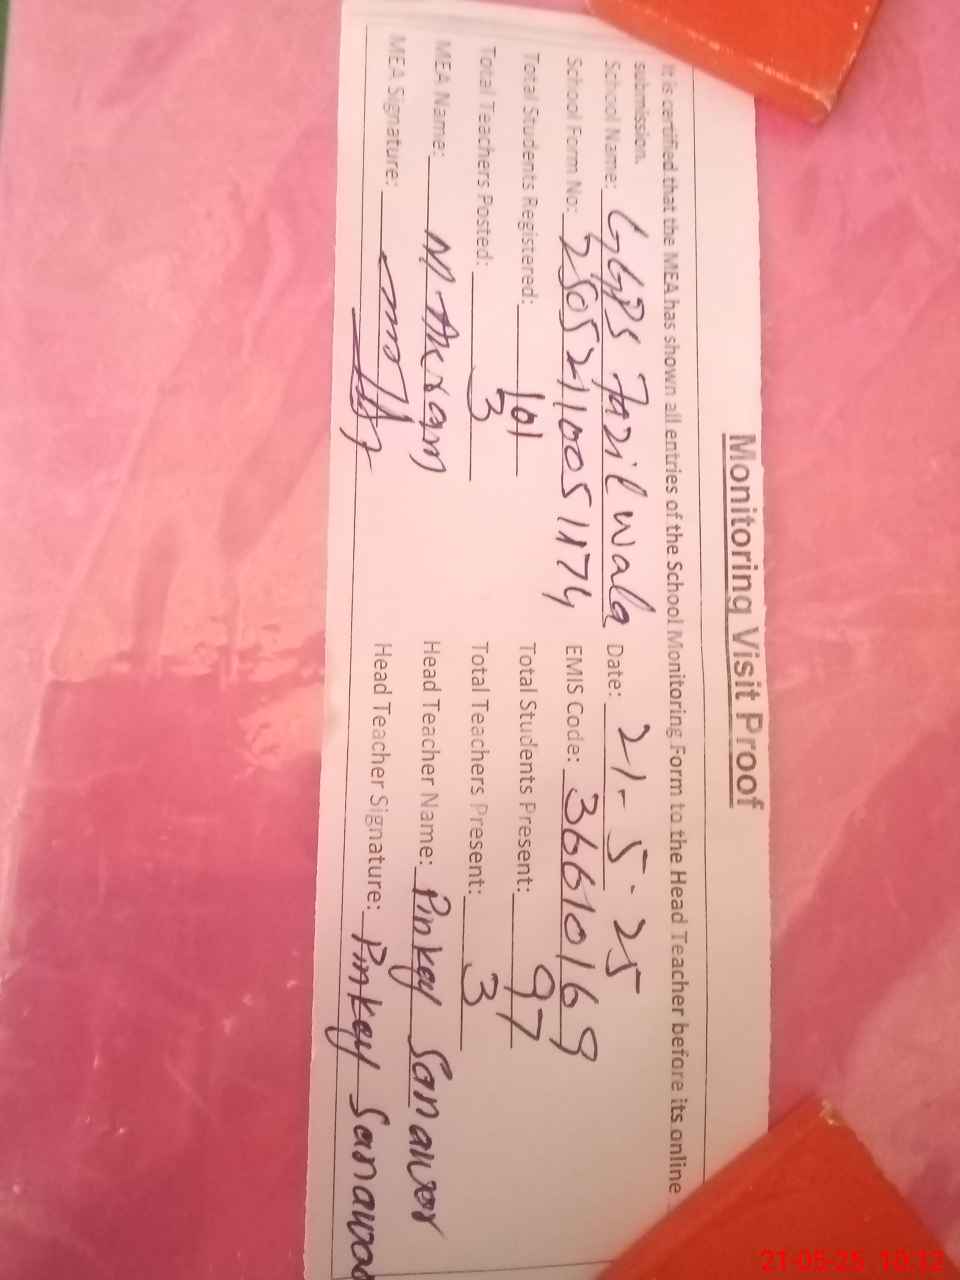 Monitoring Visit Proof
It is certified that the MEA has shown all entries of the School Monitoring Form to the Head Teacher before its online
submission.
School Name: GGPS Fazil Wala Date: 21-5-25
School Form No: 25052110051174 EMIS Code: 36610169
Total Students Registered: 101 Total Students Present: 97
Total Teachers Posted: 3 Total Teachers Present: 3
MEA Name: M Akram Head Teacher Name: Pinkey Sanawer
MEA Signature: Head Teacher Signature: Pinkey Sanawar
21-05-25 10:12